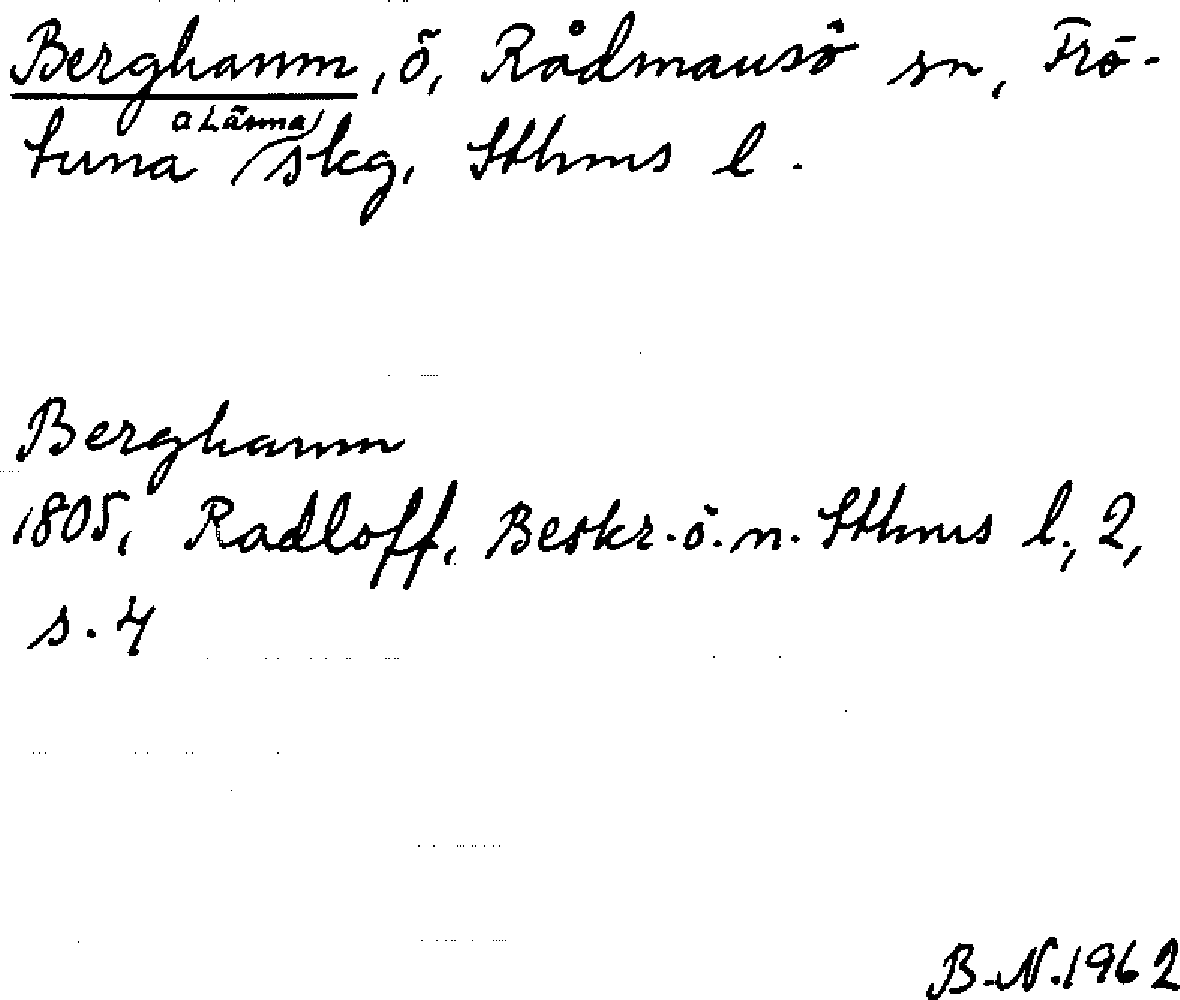 Berghamn, ö, Rådmansö sn, Frö-
tuna o Länna skg, Sthms l.
Berghamn
1805, Radloff, Beskr. ö. n. Sthms l., 2,
s. 4
B.N. 1962